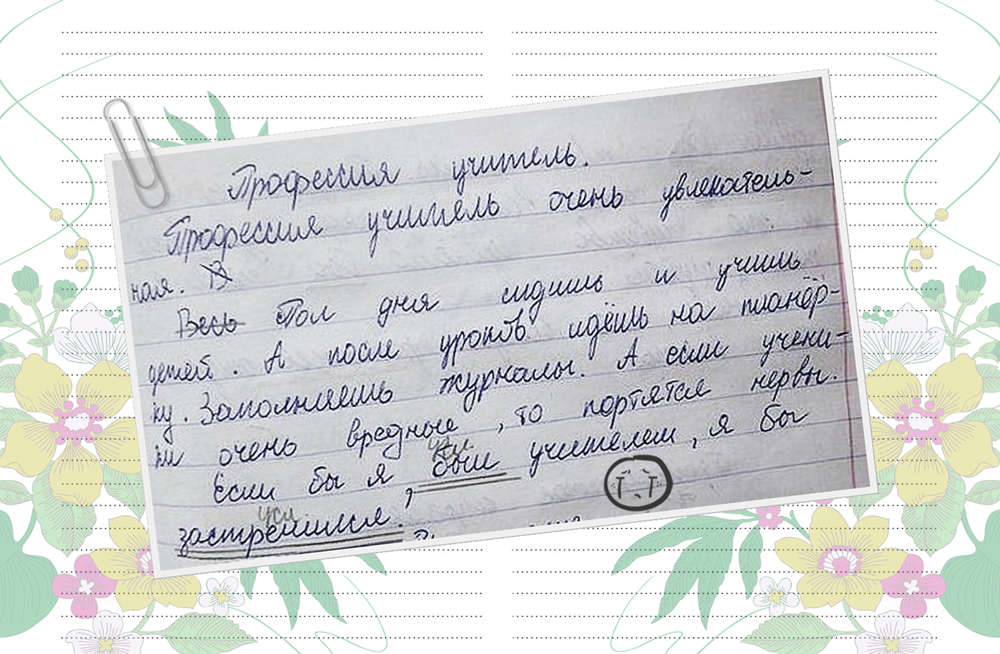 Профессия учитель.
Профессия учитель очень увлекатель-
ная. В
Весь Пол дня сидишь и учишь
детей. А после уроков идёшь на планёр-
ку. Заполняешь журналы. А если учени-
ки очень вредные, то портятся нервы.
усл.
Если бы я был учителем, я бы
усл.
застрелился.